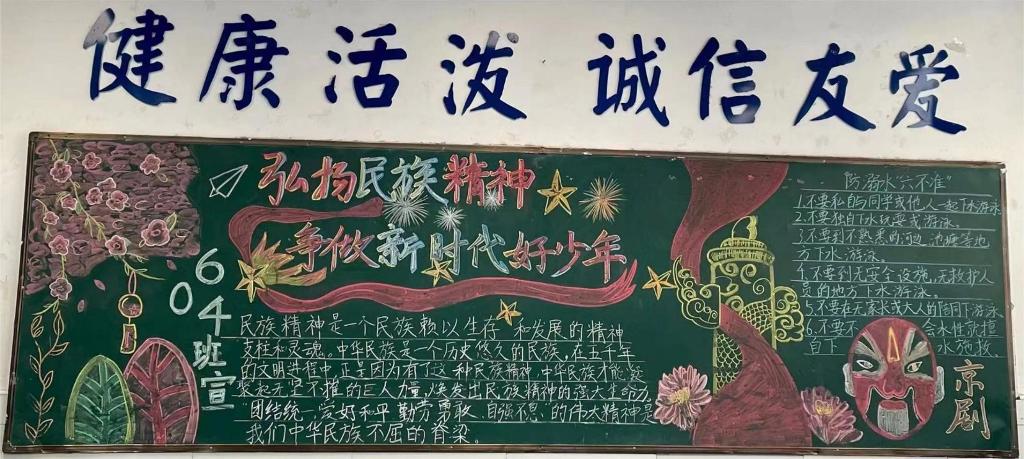 健康活泼 诚信友爱
弘扬民族精神
争做新时代好少年
604班宣
民族精神是一个民族赖以生存和发展的精神
支柱和灵魂。中华民族是一个历史悠久的民族,在五千年
的文明进程中,正是因为有了这一种民族精神,中华民族才能凝
聚起无坚不摧的巨人力量,焕发出民族精神的强大生命力。
"团结统一,爱好和平,勤劳勇敢,自强不息"的伟大精神是
我们中华民族不屈的脊梁。
"防溺水"六不准"
1.不要私自与同学或他人一起下水游泳
2.不要独自下水玩耍或游泳。
3.不要到不熟悉的河边,池塘等地
方下水游泳。
4.不要到无安全设施,无救护人
员的地方下水游泳。
5.不要在无家长或大人的陪同下游泳
6.不要不会水性能擅
自下水施救。
京剧